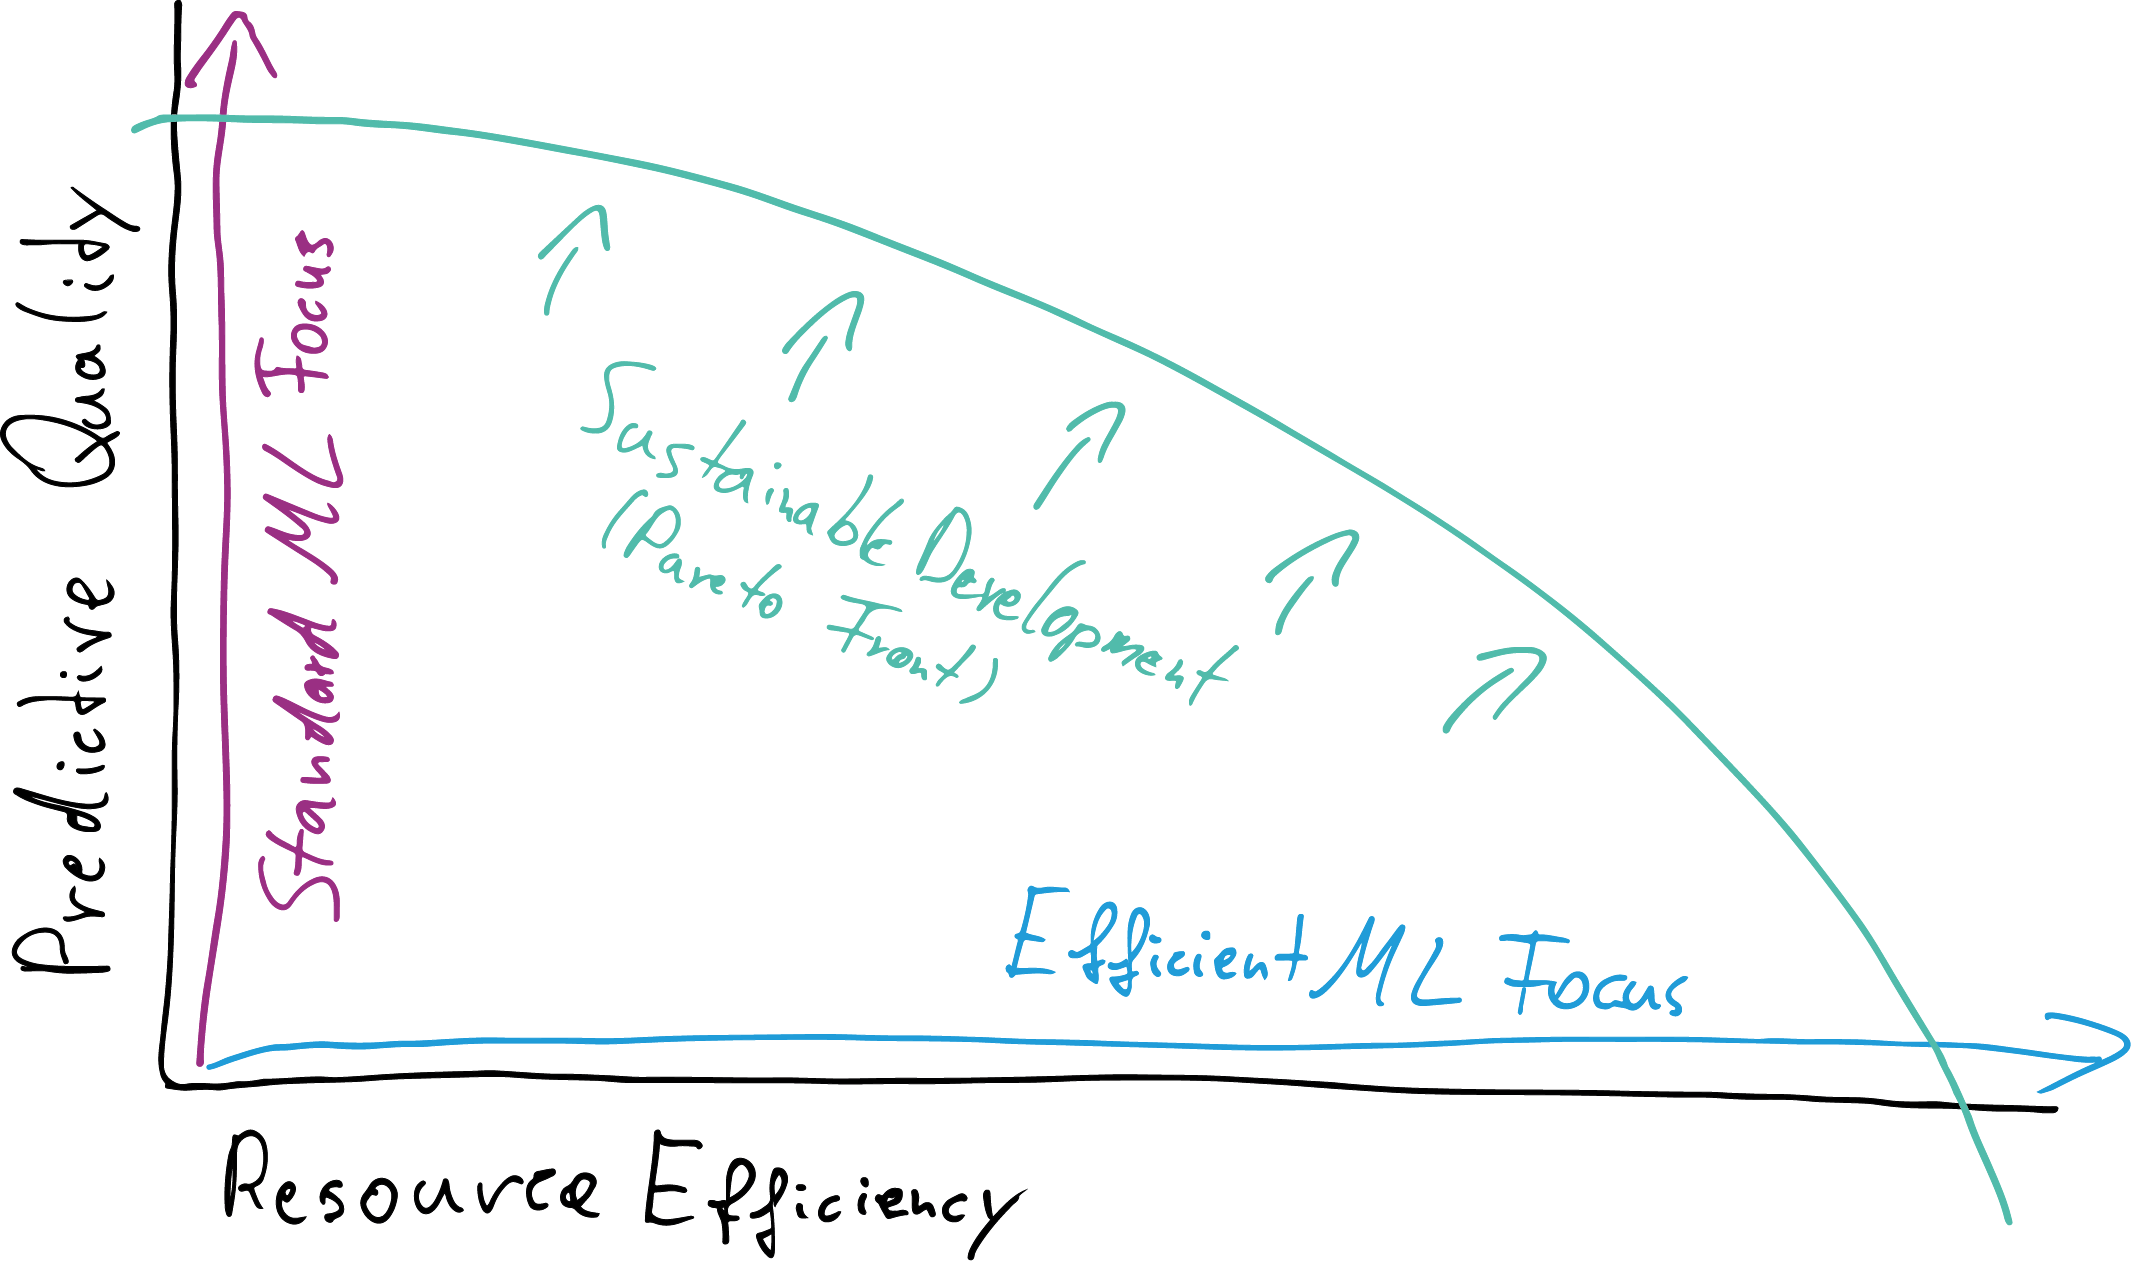 Predictive Quality
Standard ML Focus
Sustainable Development
(Pareto Front)
Efficient ML Focus
Resource Efficiency